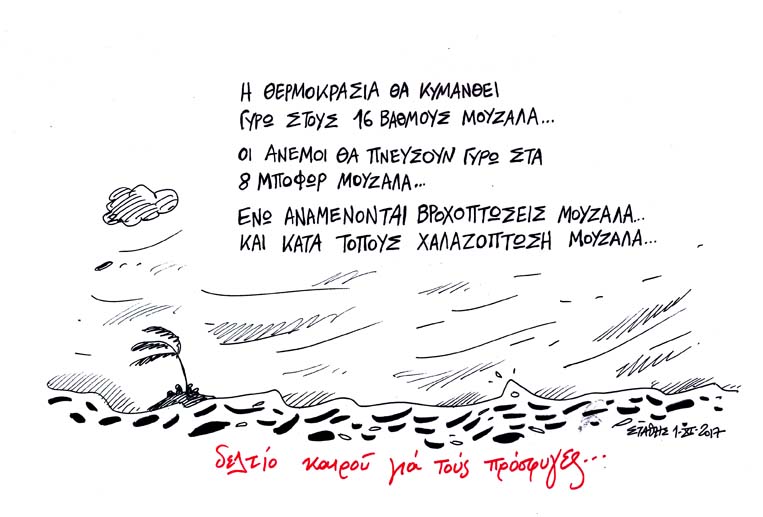 Η ΘΕΡΜΟΚΡΑΣΙΑ ΘΑ ΚΥΜΑΝΘΕΙ
ΓΥΡΩ ΣΤΟΥΣ 16 ΒΑΘΜΟΥΣ ΜΟΥΖΑΛΑ...
ΟΙ ΑΝΕΜΟΙ ΘΑ ΠΝΕΥΣΟΥΝ ΓΥΡΩ ΣΤΑ
8 ΜΠΟΦΩΡ ΜΟΥΖΑΛΑ...
ΕΝΩ ΑΝΑΜΕΝΟΝΤΑΙ ΒΡΟΧΟΠΤΩΣΕΙΣ ΜΟΥΖΑΛΑ...
ΚΑΙ ΚΑΤΑ ΤΟΠΟΥΣ ΧΑΛΑΖΟΠΤΩΣΗ ΜΟΥΖΑΛΑ...
ΣΤΑΘΗΣ 1-XI-2017
δελτίο καιροῦ γιά τούς πρόσφυγες...